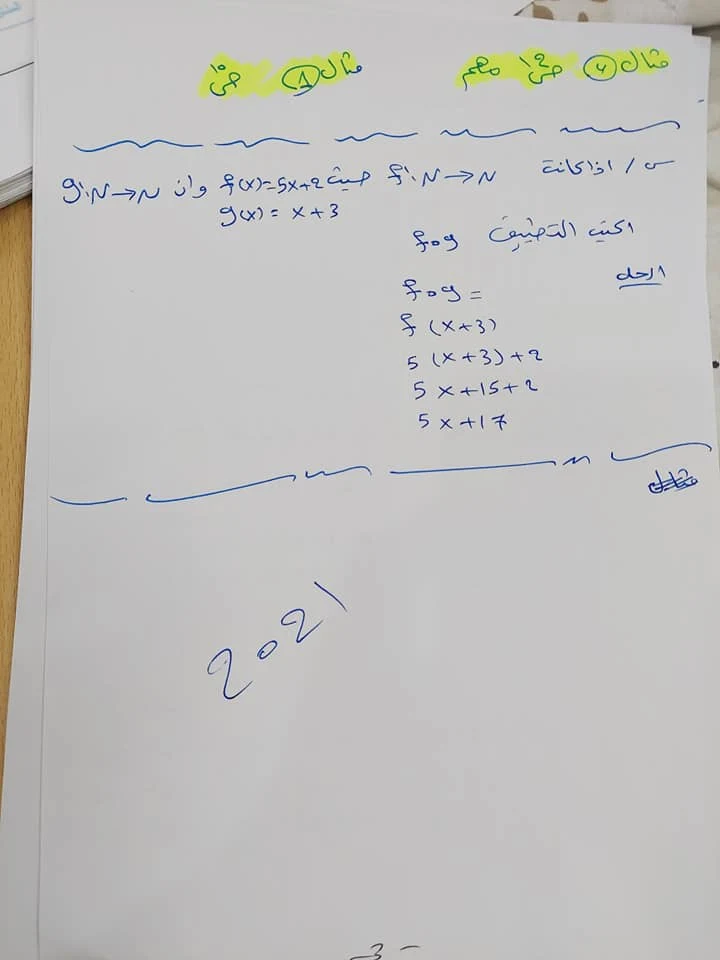 مثال (٧) ص١٩ مهم مثال (1) ص١٥
س / اذا كانة f: N → N حيث f(x)=5x+2 وان g: N → N
g(x) = x + 3
اكتب التطبيق fog
الحل
fog =
f (x+3)
5 (x+3) + 2
5x+15+2
5x+17
2021
- 3 -